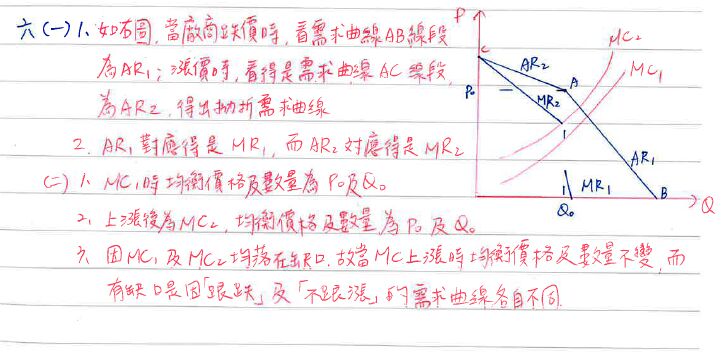 六(一)1、如右圖,當廠商跌價時,看需求曲線AB線段
為AR₁;漲價時,看得是需求曲線AC線段,
為AR₂,得出拗折需求曲線
2、AR₁對應得是MR₁,而AR₂對應得是MR₂
(二)1、MC₁時均衡價格及數量為P₀及Q₀
2、上漲後為MC₂,均衡價格及數量為P₀及Q₀
3、因MC₁及MC₂均落在缺口,故當MC上漲時均衡價格及數量不變,而
有缺口是因「跟跌」及「不跟漲」的需求曲線各自不同.
P
MC₂
MC₁
C
AR₂
A
P₀
MR₂
AR₁
MR₁
B
Q
Q₀